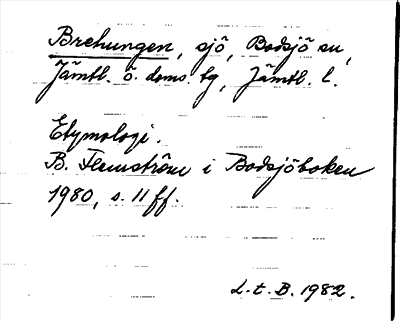 Brehungen, sjö, Bodsjö sn,
Jämtl. ö. doms. tg, Jämtl. l.
Etymologi.
B. Flemström i Bodsjöboken
1980, s. 11 ff.
L. t. B. 1982.